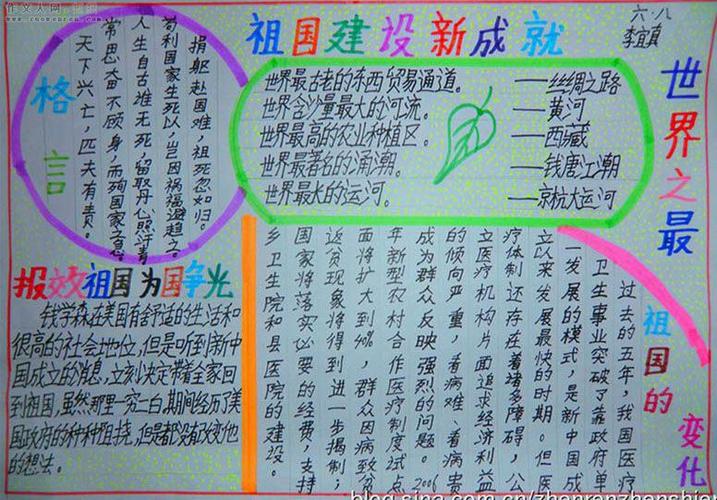 作文人网
祖国建设新成就
六.八
李宜真
世界之最
世界最古老的东西贸易通道。——丝绸之路
世界含沙量最大的河流。——黄河
世界最高的农业种植区。——西藏
世界最著名的涌潮。——钱唐江潮
世界最长的运河。——京杭大运河
格言
捐躯赴国难，视死忽如归。
苟利国家生死以，岂因祸福避趋之。
人生自古谁无死，留取丹心照汗青
常思奋不顾身，而殉国家之急
天下兴亡，匹夫有责。
报效祖国为国争光
钱学森在美国有舒适的生活和
很高的社会地位，但是听到新中
国成立的消息，立刻决定带着全家回
到祖国，虽然那里一穷二白，期间经历了美
国政府的种种阻挠，但是都没有改变他
的想法。
祖国的变化
过去的五年，我国医疗
卫生事业突破了靠政府单
一发展的模式，是新中国成
立以来发展最快的时期。但医
疗体制还存在着诸多障碍，公
立医疗机构片面追求经济利益
的倾向严重，看病难、看病贵
成为群众反映强烈的问题。2006
年新型农村合作医疗制度试点
面将扩大到40%，群众因病致贫
返贫现象将得到进一步揭制；
国家将落实必要的经费，支持
乡卫生院和县医院的建设。